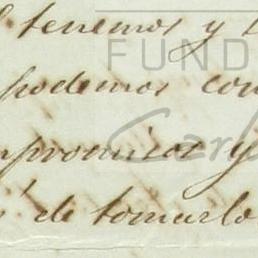 tenemos y
FUND
podemos con
promisos y
de tomarlo